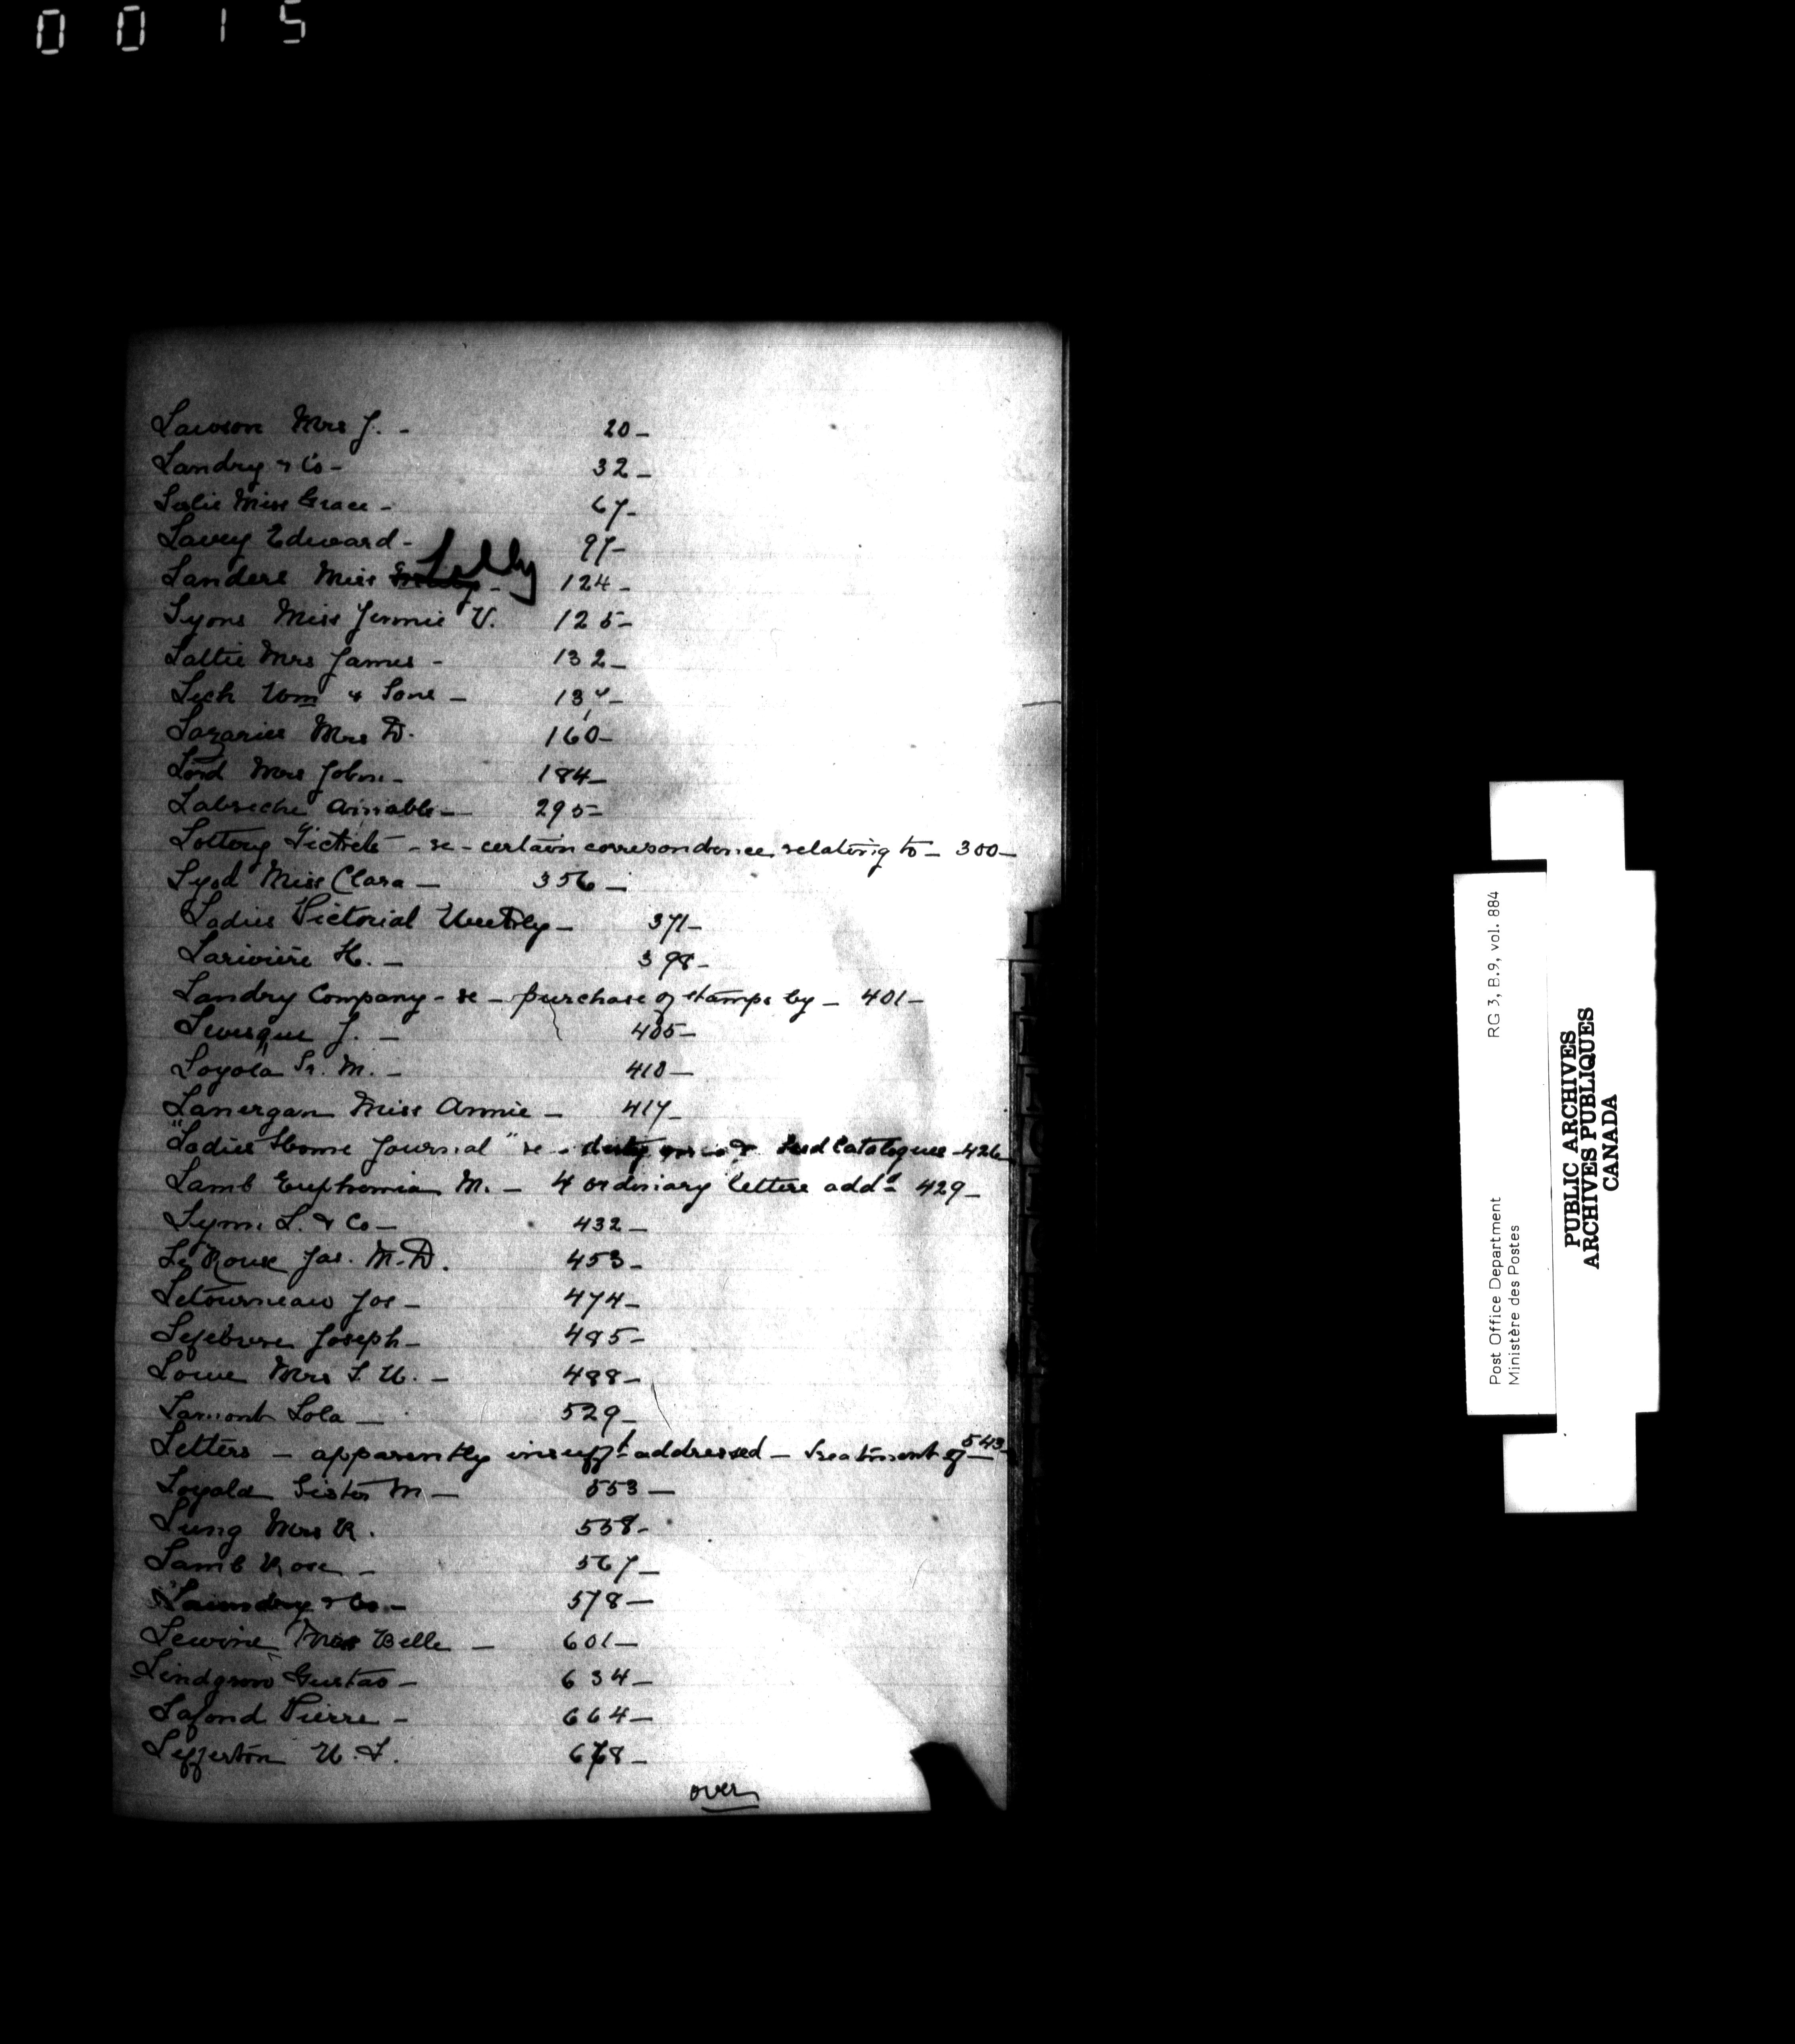 0 0 1 5
Lawson Mrs J. - 20 -
Landry & Co - 32 -
Leslie Miss Grace - 67 -
Lavey Edward - 97 -
Landers Miss Lilly - 124 -
Lyons Miss Jennie V. 125 -
Lattie Mrs James - 132 -
Lech Wm & Sons -
Lazarius Mrs D. 160 -
Lord Mrs John - 184 -
Labreche Aimable - 295 -
Lottery Tickets - re - certain corresondence relating to - 300 -
Lyod Miss Clara - 356 -
Ladies Pictorial Weekly - 371 -
Lariviere H. - 398 -
Landry Company - re - purchase of stamps by - 401 -
Levesque J. - 405 -
Loyola Sr. M. - 410 -
Lanergan Miss Annie - 417 -
"Ladies Home Journal" re - duty on Seed Catalogues - 426
Lamb Euphemia M. - 4 ordinary letters addd 429 -
Lym. L. & Co - 432 -
Le Roux Jas. M.D. 453 -
Letourneau Jos - 474 -
Lefebvre Joseph - 485 -
Lowe Mrs L. U. - 488 -
Lamont Lola - 529 -
Letters - apparently insufft addressed - treatment of - 543 -
Loyald Sister M - 553 -
Lung Mrs R. 558 -
Lamb Rose - 567 -
"Laundry & Co. - 578 -
Lewine Belle - 601 -
Lindgren Gustav - 634 -
Lafond Pierre - 664 -
Lefferton U. L. 678 -
over
Post Office Department RG 3, B.9, vol. 884
Ministère des Postes
PUBLIC ARCHIVES
ARCHIVES PUBLIQUES
CANADA